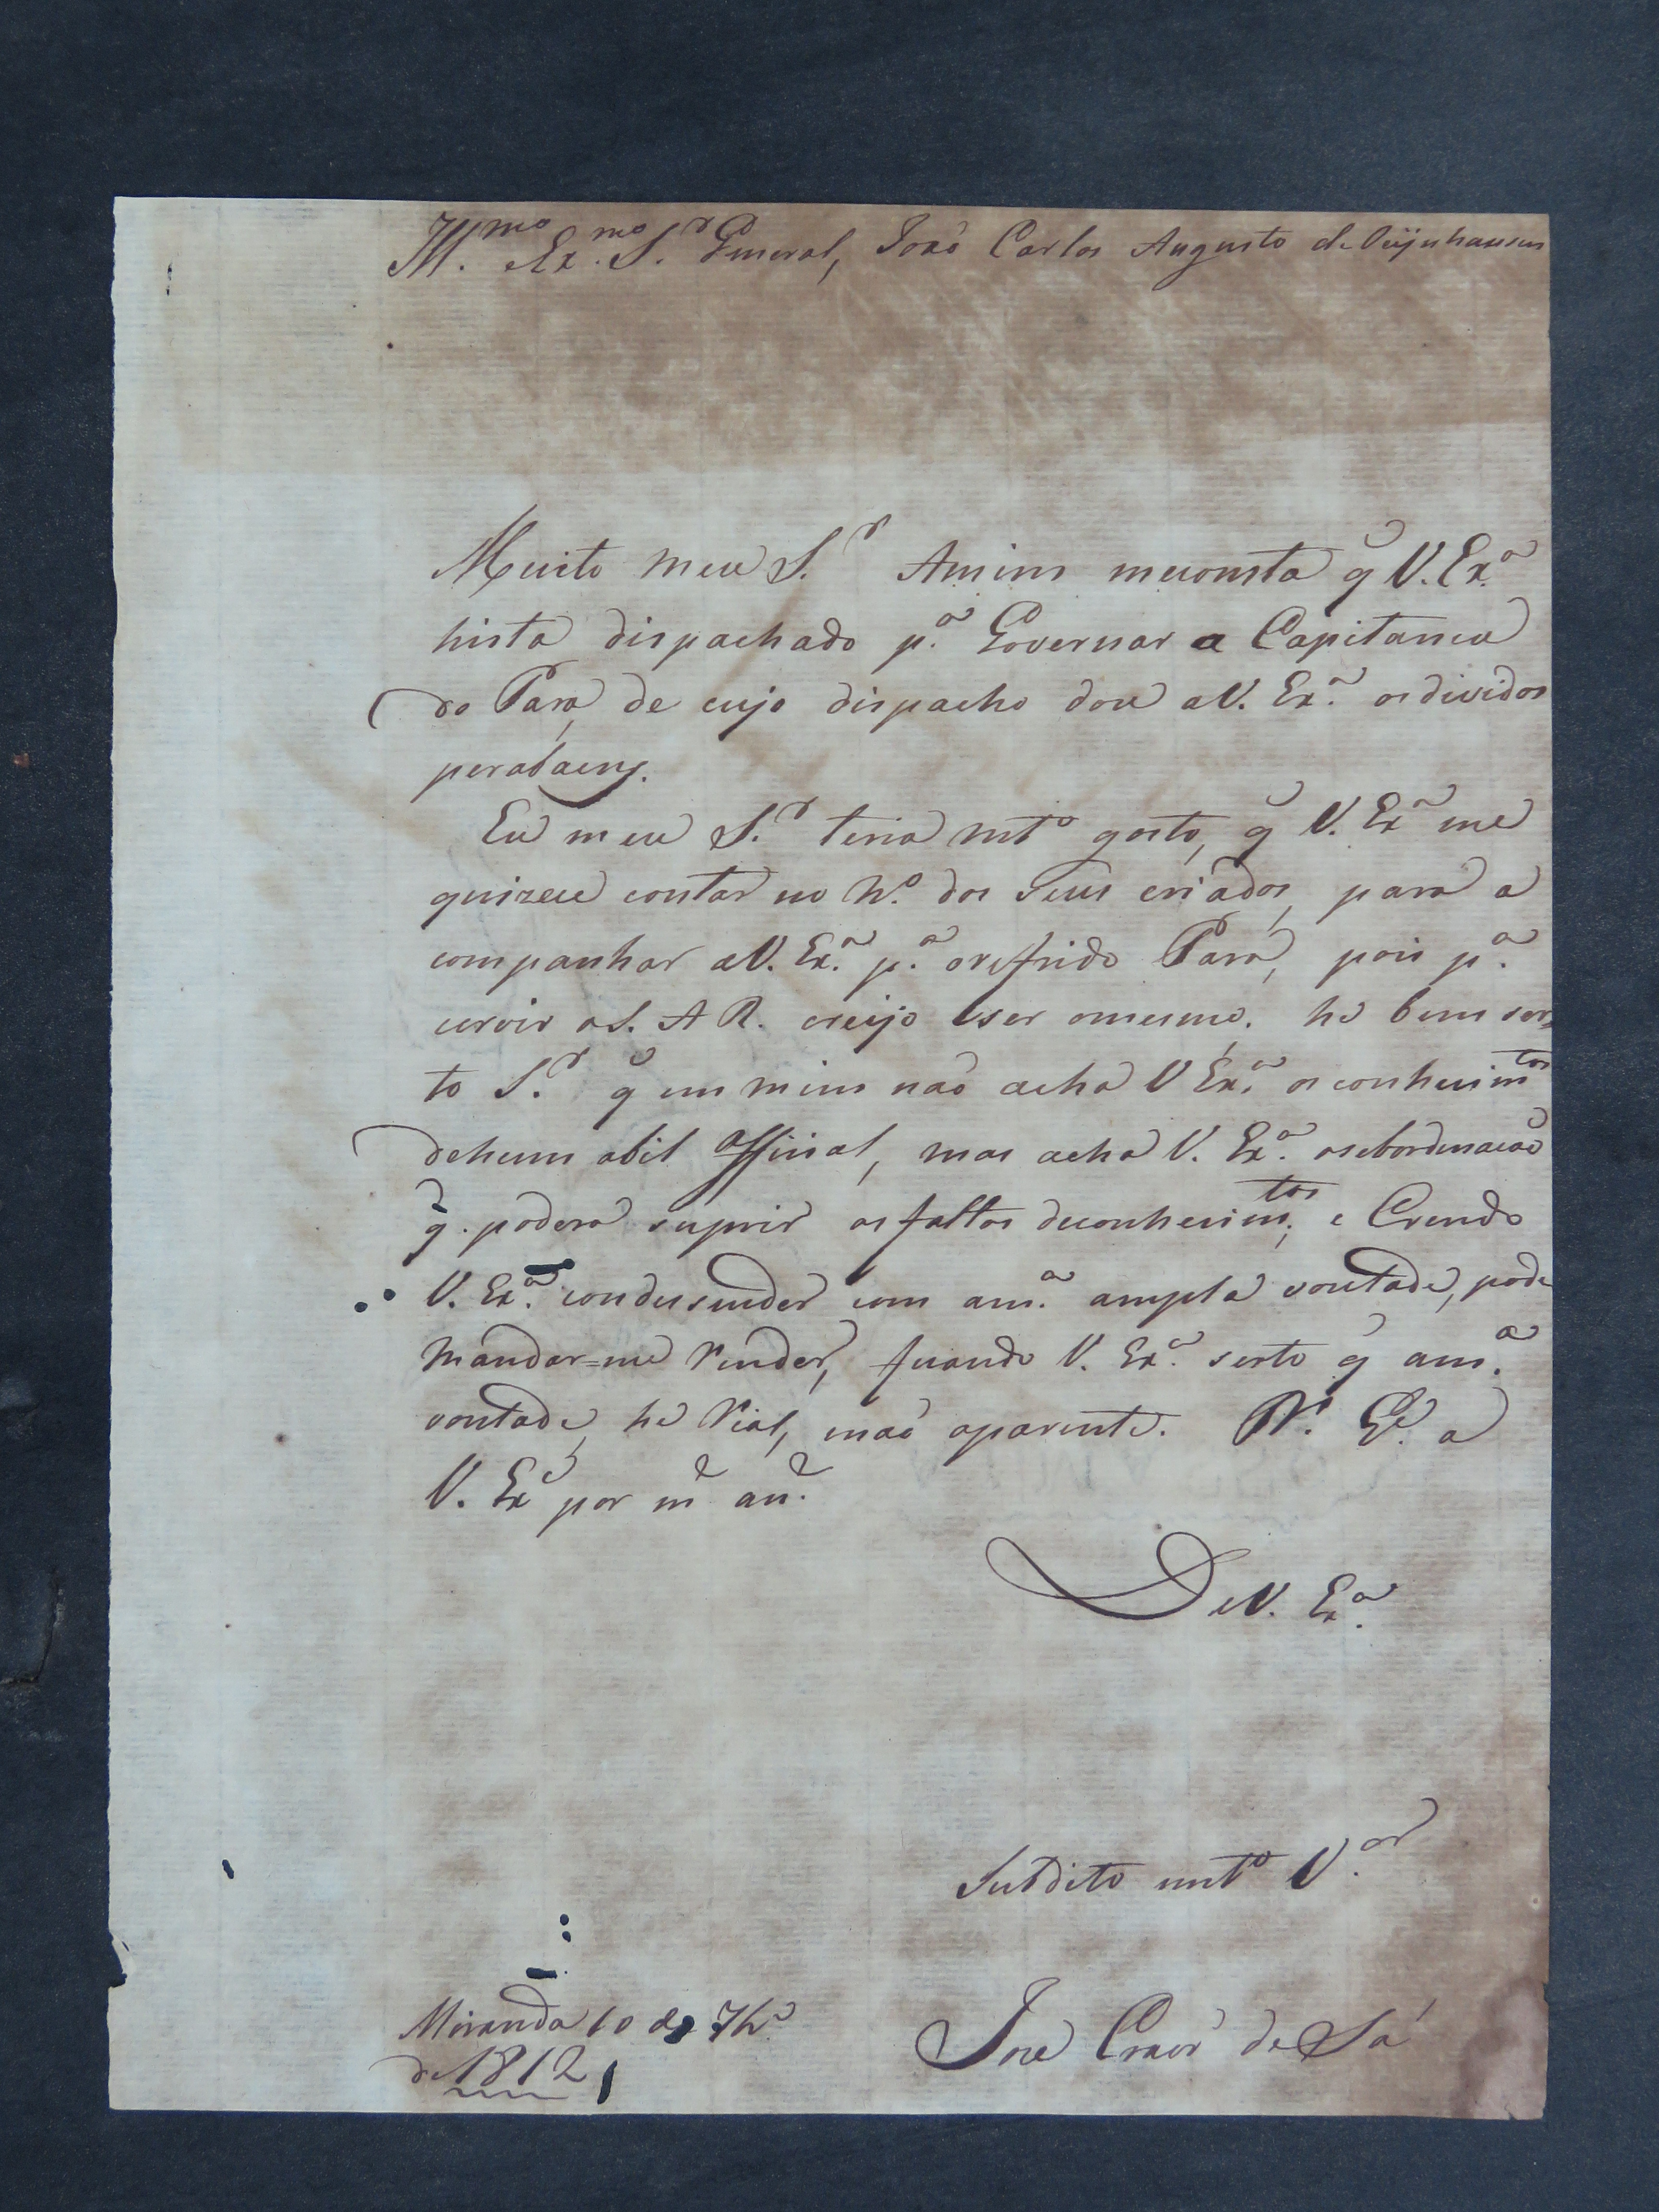 Ill.mo Ex.mo S.r General, João Carlos Augusto de Oeijnhausen
Muito meu S.r Amim meconsta q̃ V. Ex.a
hista dispachado p.a Governar a Capitania
do Pará, de cujo dispacho dou aV. Ex.a osdividos
perabaens.
Eu meu S.r teria mt.o gosto, q̃ V. Ex.a me
quizece contar no N.o dos seus criados, para a
companhar aV. Ex.a p.a orefrido Pará, pois p.a
cirvir aS. A R. creijo ser omesmo, he bem ser=
to S.r q̃ em mim não acha V Ex.a osconhecim.tos
dehum abil Official, mas acha V. Ex.a asobordinacão
q̃. podera suprir asfaltas deconhecim.tos, e Crendo
V. Ex.a condusender com am.a ampla vontade, pode
mandar=me render, ficando V. Ex.a serto q̃ am.a
vontade, he rial, enaõ aparente. D.s G.e a
V. Ex.a por m.s an.s
DeV. Ex.a
Subdito mt.o V.or
Miranda 10 de 7br.o
de 1812
Joze Craveiro de Sá